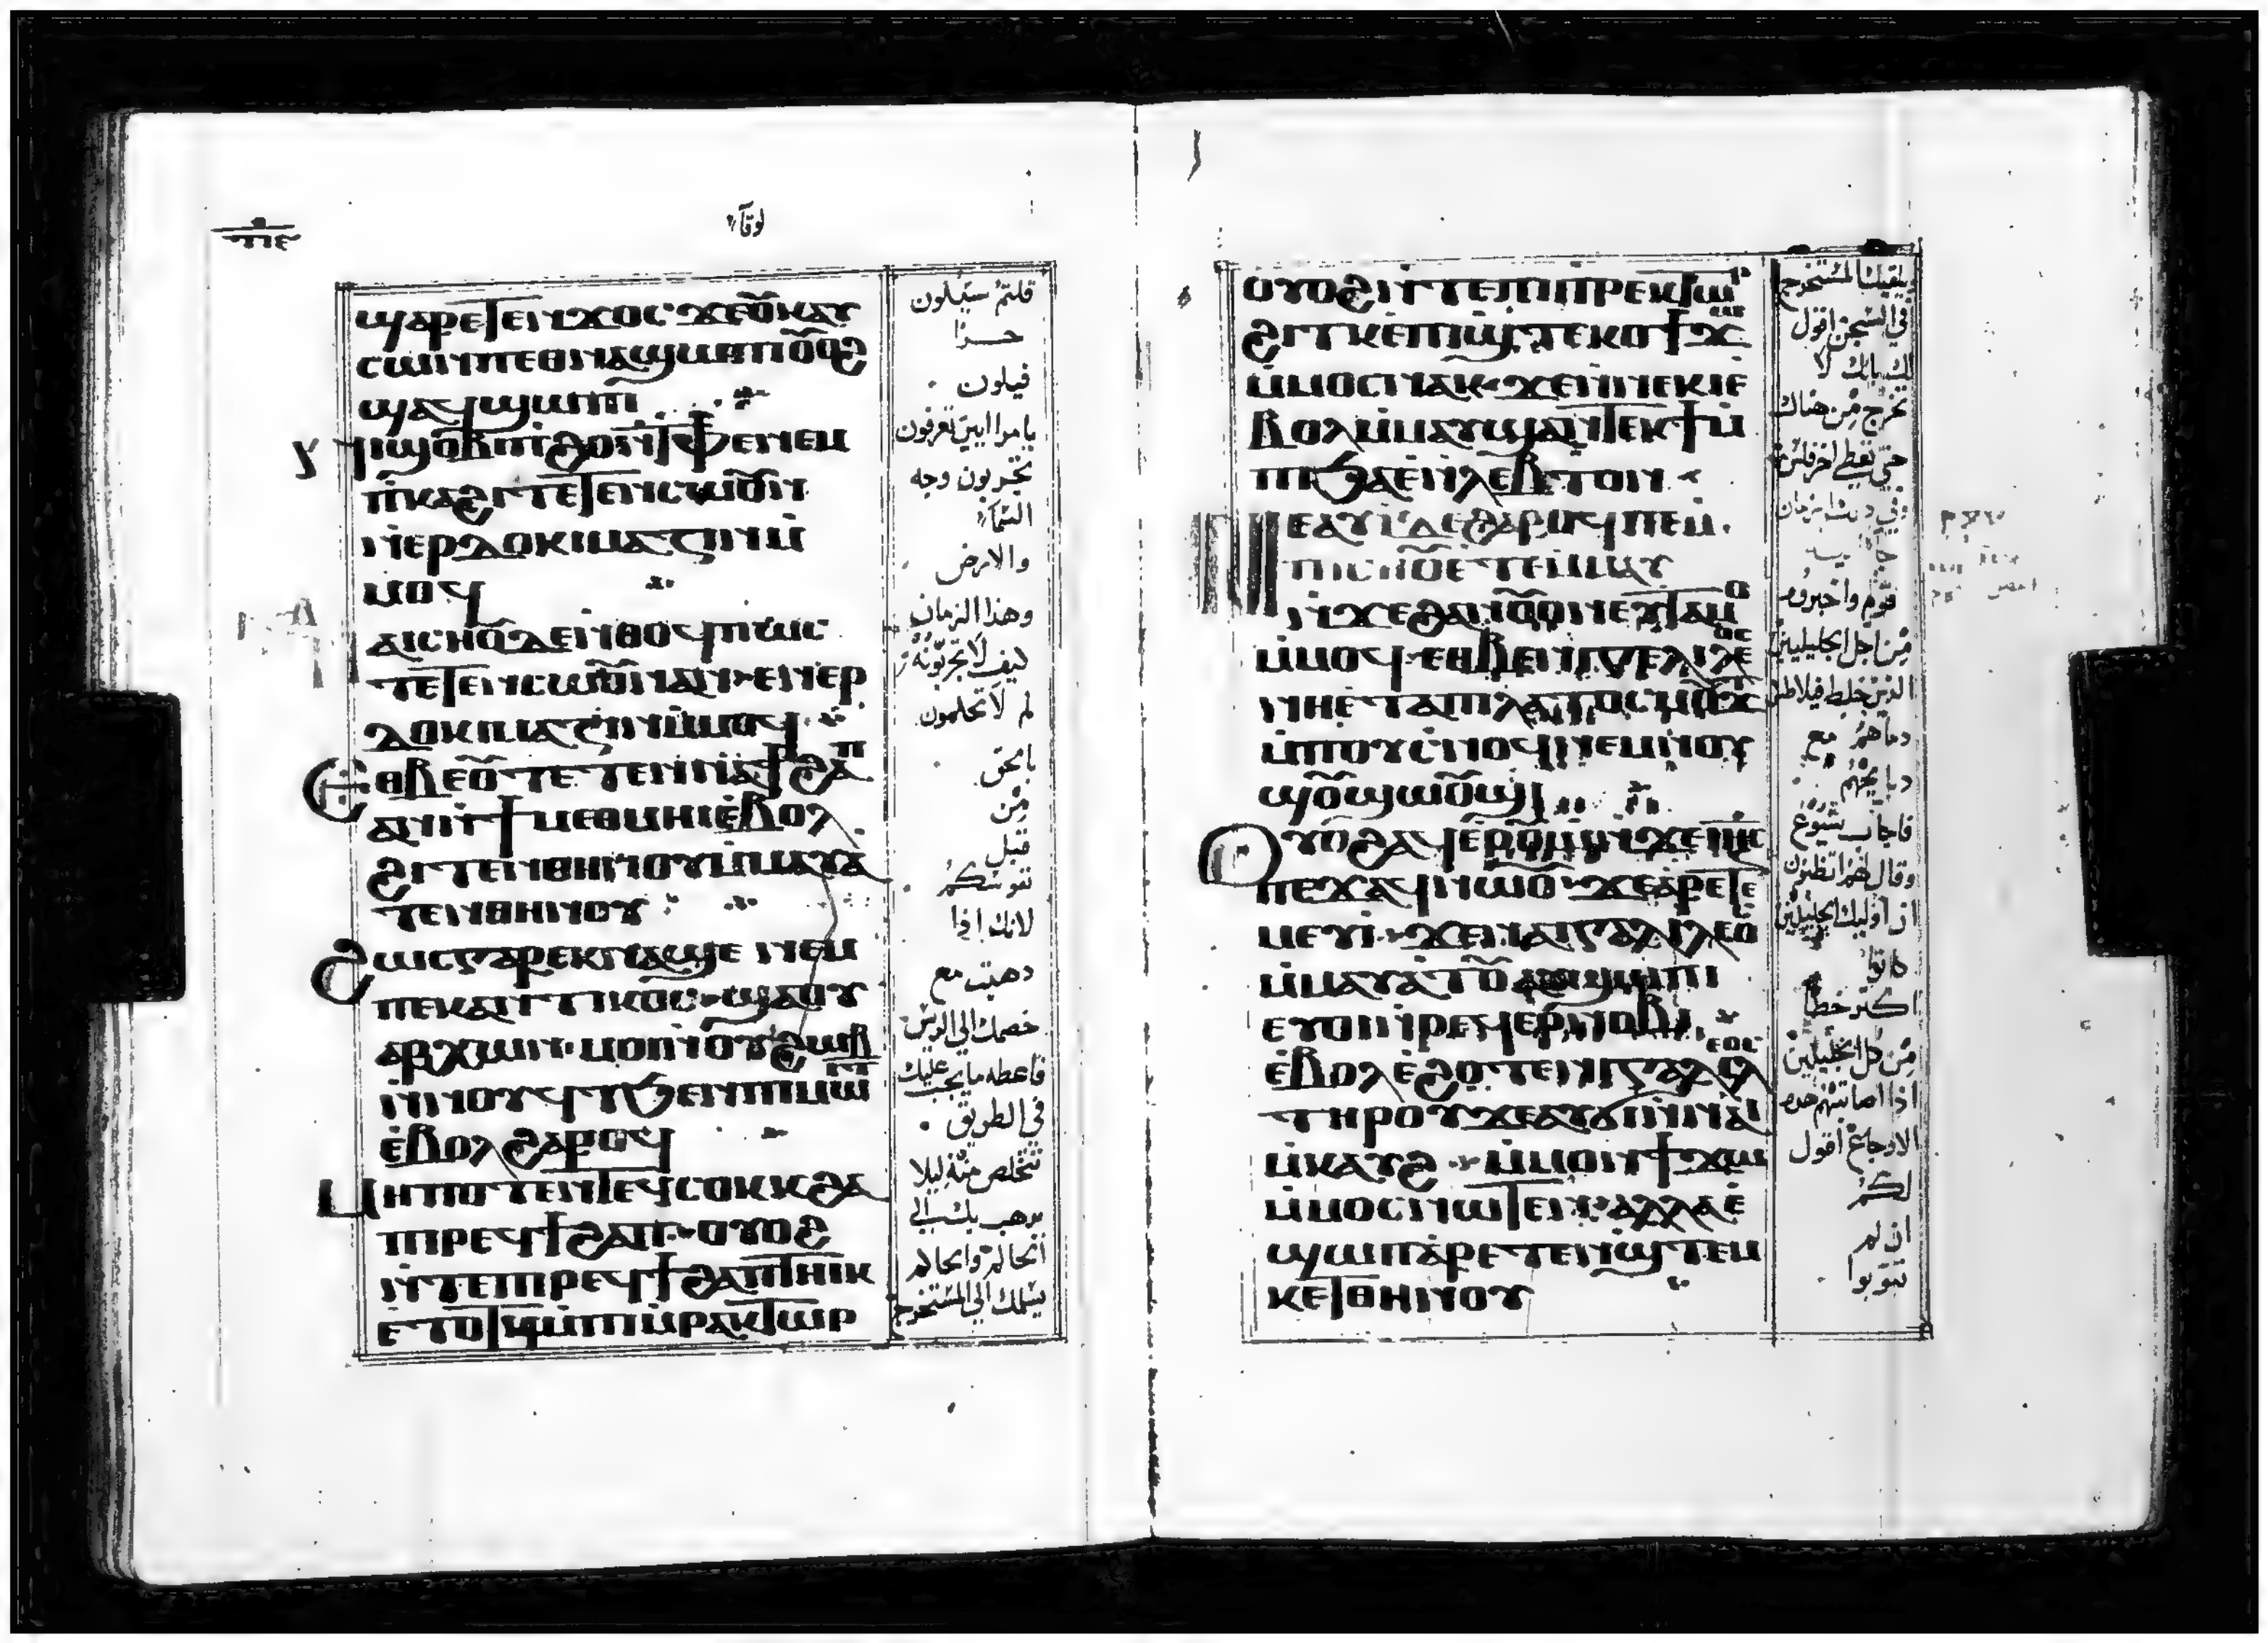 لوقا
ϣⲁⲣⲉⲧⲉⲛϫⲟⲥ ϫⲉⲟⲩⲕⲁⲩ
ⲥⲱⲛ ⲡⲉⲑⲛⲁϣⲱⲡⲓ ⲟⲩⲟϩ
ϣⲁϥϣⲱⲡⲓ
ⲛⲓϣⲟⲃⲓ ⲡϩⲟ ⲛⲧⲫⲉ ⲛⲉⲙ
ⲡⲕⲁϩⲓ ⲧⲉⲧⲉⲛⲥⲱⲟⲩⲛ
ⲛⲉⲣⲇⲟⲕⲓⲙⲁⲍⲓⲛ ⲙ̇
ⲙⲟϥ
ⲡⲁⲓⲥⲏⲟⲩ ⲇⲉ ⲛⲑⲟϥ ⲡⲱⲥ
ⲧⲉⲧⲉⲛⲥⲱⲟⲩⲛ ⲁⲛ ⲉⲛⲉⲣ
ⲇⲟⲕⲓⲙⲁⲍⲓⲛ ⲙ̇ⲙⲟϥ
ⲉⲑⲃⲉⲟⲩ ⲧⲉⲧⲉⲛϯϩⲁⲡ
ⲁⲛ ⲉϯⲙⲉⲑⲙⲏⲓ ⲉ̇ⲃⲟⲗ
ϩⲓⲧⲉⲛ ⲑⲏⲛⲟⲩ ⲙ̇ⲙⲁⲩⲁ
ⲧⲉⲛ ⲑⲏⲛⲟⲩ
ϩⲱⲥ ⲅⲁⲣ ⲉⲕⲛⲁϣⲉ ⲛⲉⲙ
ⲡⲉⲕⲁⲛⲧⲓⲇⲓⲕⲟⲥ ϣⲁ ⲟⲩ
ⲁⲣⲭⲱⲛ ⲙⲟⲓ ⲛⲟⲩϩⲱⲃ
ⲛ̇ⲛⲟⲩϥ ϧⲉⲛ ⲡⲓⲙⲱⲓⲧ
ⲉ̇ⲃⲟⲗ ϩⲁⲣⲟϥ
ⲙⲏⲡⲟⲧⲉ ⲛⲧⲉϥⲥⲟⲕⲕ ϩⲁ
ⲡⲓⲣⲉϥϯϩⲁⲡ ⲟⲩⲟϩ
ⲛ̇ⲧⲉ ⲡⲓⲣⲉϥϯϩⲁⲡ ⲧⲏⲓⲕ
ⲉ̇ⲧⲟⲧϥ ⲙ̇ⲡⲓⲡⲣⲁⲕⲧⲱⲣ
قلتم سيكون
حرا
فيكون
يا مراايين تعرفون
تجربون وجه
السماء
والارض
وهذا الزمان
كيف لا تجربونه
لم لا تحكمون
بالحق
من
قبل
نفوسكم
لانك اذا
ذهبت مع
خصمك الي الرييس
فاعطه ما يجب عليك
في الطريق
تتخلص منه ليلا
يذهب بك الي
الحاكم والحاكم
يسلمك الي المستخرج
ⲟⲩⲟϩ ⲛ̇ⲧⲉ ⲡⲓⲡⲣⲁⲕⲧⲱⲣ
ϩⲓⲧⲕ ⲉ̇ⲡⲓϣⲧⲉⲕⲟ ϯϫⲱ
ⲙ̇ⲙⲟⲥ ⲛⲁⲕ ϫⲉ ⲛⲛⲉⲕⲓ ⲉ
ⲃⲟⲗ ⲙ̇ⲙⲁⲩ ϣⲁⲛⲧⲉⲕϯ ⲙ̇
ⲡⲓϧⲁⲉ ⲛⲗⲉⲡⲧⲟⲛ
ⲛⲉⲁⲩⲓ ⲇⲉ ϩⲁⲣⲟϥ ⲡⲉ ⲙ̇
ⲡⲓⲥⲏⲟⲩ ⲉ̇ⲧⲉⲙⲙⲁⲩ
ⲛ̇ϫⲉ ϩⲁⲛⲟⲩⲟⲛ ⲉⲩⲧⲁⲙⲟ
ⲙ̇ⲙⲟϥ ⲉⲑⲃⲉ ⲛⲓⲅⲁⲗⲓⲗⲉⲟⲥ
ⲛⲏ ⲉ̇ⲧⲁ ⲡⲓⲗⲁⲧⲟⲥ ⲙⲟⲩϫⲧ
ⲙ̇ⲡⲟⲩⲥⲛⲟϥ ⲛⲉⲙ ⲛⲟⲩ
ϣⲟⲩϣⲱⲟⲩϣⲓ
ⲟⲩⲟϩ ⲁϥⲉⲣⲟⲩⲱ ⲛ̇ϫⲉ ⲓⲏⲥ
ⲡⲉϫⲁϥ ⲛⲱⲟⲩ ϫⲉ ⲁⲣⲉⲧⲉ
ⲙⲉⲩⲓ ϫⲉ ⲛⲁⲓⲅⲁⲗⲓⲗⲉⲟⲥ
ⲙ̇ⲙⲁⲩⲁⲧⲟⲩ ⲁⲩϣⲱⲡⲓ
ⲉⲩⲟⲓ ⲛ̇ⲣⲉϥⲉⲣⲛⲟⲃⲓ
ⲉ̇ⲃⲟⲗ ⲉ̇ϩⲟⲧⲉ ⲛⲓⲅⲁⲗⲓⲗⲉⲟⲥ
ⲧⲏⲣⲟⲩ ϫⲉ ⲁⲩϭⲓ ⲛ̇ⲛⲁⲓ
ⲙ̇ⲕⲁⲩϩ ⲙ̇ⲙⲟⲛ ϯϫⲱ
ⲙ̇ⲙⲟⲥ ⲛⲱⲧⲉⲛ ⲁⲗⲗⲁ ⲉ̇
ϣⲱⲡ ⲁⲣⲉⲧⲉⲛϣⲧⲉⲙ
ⲕⲉⲧ ⲑⲏⲛⲟⲩ
يلقيك المستخرج
في السجن اقول
لك انك لا
تخرج من هناك
حتي تعطي اخر فلس
قوم واخبروه
من اجل الجليليين
الذين خلط فيلاطس
دماهم مع
ذبايحهم
فاجاب يسوع
وقال لهم اتظنون
ان اوليك الجليليين
كانوا
اكثر خطا
من كل الجليليين
اذا اصابتهم هذه
الاوجاع اقول
لكم
ان لم
تتوبوا